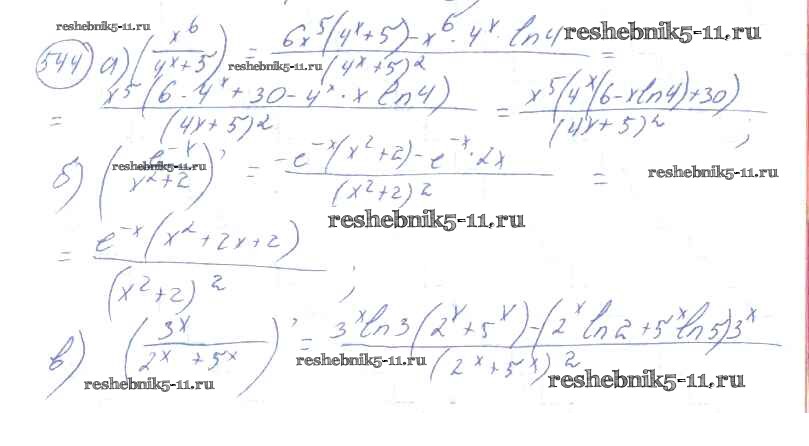 reshebnik5-11.ru
544) а) (x⁶/(4ˣ+5))' = (6x⁵(4ˣ+5) - x⁶·4ˣ·ln4)/(4ˣ+5)² =
reshebnik5-11.ru
reshebnik5-11.ru
= x⁵(6·4ˣ+30-4ˣ·x ln4)/(4x+5)² = x⁵(4ˣ(6-xln4)+30)/(4x+5)² ;
б) (e⁻ˣ/(x²+2))' = (-e⁻ˣ(x²+2) - e⁻ˣ·2x)/(x²+2)² =
reshebnik5-11.ru
reshebnik5-11.ru
reshebnik5-11.ru
= e⁻ˣ(x²+2x+2)/(x²+2)² ;
в) (3ˣ/(2ˣ+5ˣ))' = (3ˣln3(2ˣ+5ˣ)-(2ˣln2+5ˣln5)3ˣ)/(2ˣ+5ˣ)²
reshebnik5-11.ru
reshebnik5-11.ru
reshebnik5-11.ru